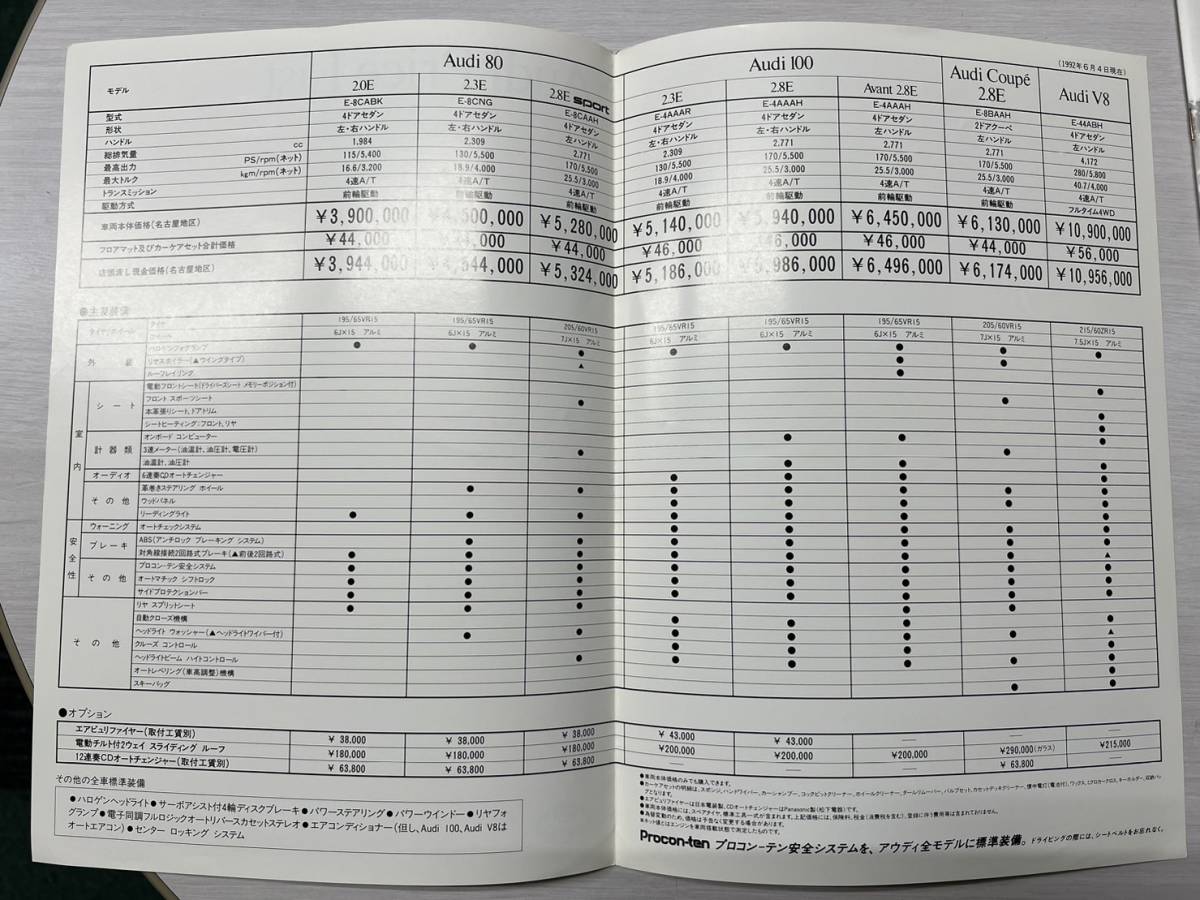 (1992年6月4日現在)
モデル Audi 80 Audi 100 Audi Coupé 2.8E Audi V8
2.0E 2.3E 2.8E sport 2.3E 2.8E Avant 2.8E
型式 E-8CABK E-8CNG E-8CAAH E-4AAAR E-4AAAH E-4AAAH E-8BAAH E-44ABH
形状 4ドアセダン 4ドアセダン 4ドアセダン 4ドアセダン 4ドアセダン 4ドアセダン 2ドアクーペ 4ドアセダン
ハンドル 左・右ハンドル 左・右ハンドル 左ハンドル 左・右ハンドル 左・右ハンドル 左ハンドル 左ハンドル 左ハンドル
総排気量 cc 1,984 2,309 2,771 2,309 2,771 2,771 2,771 4,172
最高出力 PS/rpm(ネット) 115/5,400 130/5,500 170/5,500 130/5,500 170/5,500 170/5,500 170/5,500 280/5,800
最大トルク kgm/rpm(ネット) 16.6/3,200 18.9/4,000 25.5/3,000 18.9/4,000 25.5/3,000 25.5/3,000 25.5/3,000 40.7/4,000
トランスミッション 4速A/T 4速A/T 4速A/T 4速A/T 4速A/T 4速A/T 4速A/T 4速A/T
駆動方式 前輪駆動 前輪駆動 前輪駆動 前輪駆動 前輪駆動 前輪駆動 前輪駆動 フルタイム4WD
車両本体価格(名古屋地区) ¥3,900,000 ¥4,500,000 ¥5,280,000 ¥5,140,000 ¥5,940,000 ¥6,450,000 ¥6,130,000 ¥10,900,000
フロアマット及びカーケアセット合計価格 ¥44,000 ¥44,000 ¥44,000 ¥46,000 ¥46,000 ¥46,000 ¥44,000 ¥56,000
店頭渡し現金価格(名古屋地区) ¥3,944,000 ¥4,544,000 ¥5,324,000 ¥5,186,000 ¥5,986,000 ¥6,496,000 ¥6,174,000 ¥10,956,000
●主要装備
タイヤ/ホイール タイヤ 195/65VR15 195/65VR15 205/60VR15 195/65VR15 195/65VR15 195/65VR15 205/60VR15 215/60ZR15
ホイール 6J×15 アルミ 6J×15 アルミ 7J×15 アルミ 6J×15 アルミ 6J×15 アルミ 6J×15 アルミ 7J×15 アルミ 7.5J×15 アルミ
外装 ハロゲンフォグランプ ● ● ● ● ● ● ●
リヤスポイラー(▲ウイングタイプ) ▲ ● ●
ルーフレイリング ●
室内
シート 電動フロントシート(ドライバーズシート メモリーポジション付) ●
フロント スポーツシート ● ●
本革張りシート、ドアトリム ●
シートヒーティング:フロント、リヤ ●
計器類 オンボード コンピューター ● ● ●
3連メーター(油温計、油圧計、電圧計) ● ●
油温計、油圧計 ● ● ●
オーディオ 6連奏CDオートチェンジャー ● ● ● ●
その他 革巻きステアリング ホイール ● ● ● ● ● ● ●
ウッドパネル ● ● ● ● ●
リーディングライト ● ● ● ● ● ● ●
安全性
ウォーニング オートチェックシステム ● ● ● ● ●
ブレーキ ABS(アンチロック ブレーキング システム) ● ● ● ● ● ● ●
対角線接続2回路式ブレーキ(▲前後2回路式) ● ● ● ● ● ● ● ▲
その他 プロコンーテン安全システム ● ● ● ● ● ● ● ●
オートマチック シフトロック ● ● ● ● ● ● ● ●
サイドプロテクションバー ● ● ● ● ● ● ● ●
その他 リヤ スプリットシート ● ● ● ● ●
自動クローズ機構 ● ● ● ●
ヘッドライト ウォッシャー(▲ヘッドライトワイパー付) ● ● ● ● ● ● ▲
クルーズ コントロール ● ● ● ●
ヘッドライトビーム ハイトコントロール ● ● ● ● ● ●
オートレベリング(車高調整)機構
スキーバッグ ● ●
●オプション
エアピュリファイヤー(取付工賃別) ¥ 38,000 ¥ 38,000 ¥ 38,000 ¥ 43,000 ¥ 43,000 — — —
電動チルト付2ウェイ スライディング ルーフ ¥180,000 ¥180,000 ¥180,000 ¥200,000 ¥200,000 ¥200,000 ¥290,000(ガラス) ¥215,000
12連奏CDオートチェンジャー(取付工賃別) ¥ 63,800 ¥ 63,800 ¥ 63,800 — — — ¥ 63,800 —
その他の全車標準装備
●ハロゲンヘッドライト●サーボアシスト付4輪ディスクブレーキ●パワーステアリング●パワーウインドー●リヤフォ
グランプ●電子同調フルロジックオートリバースカセットステレオ●エアコンディショナー(但し、Audi 100、Audi V8は
オートエアコン)●センター ロッキング システム
●車両本体価格のみでも購入できます。
●カーケアセットの明細は、スポンジ、ハンドワイパー、カーシャンプー、コックピットクリーナー、ホイールクリーナー、タールリムーバー、バルブセット、カセットデッキクリーナー、懐中電灯(電池付)、ワックス、ミクロカークロス、キーホルダー、収納バッ
グとなります。
●エアピュリファイヤーは日本電装製、CDオートチェンジャーはPanasonic製(松下電器)です。
●車両本体価格には、スペアタイヤ、標準工具一式が含まれます。上記価格には、保険料、税金(消費税を含む)、登録に伴う費用等は含まれておりません。
●為替変動のため、価格は予告なく変更する場合があります。
●ネット値とはエンジンを車両搭載状態で測定したものです。
Procon-ten プロコンーテン安全システムを、アウディ全モデルに標準装備。ドライビングの際には、シートベルトをお忘れなく。